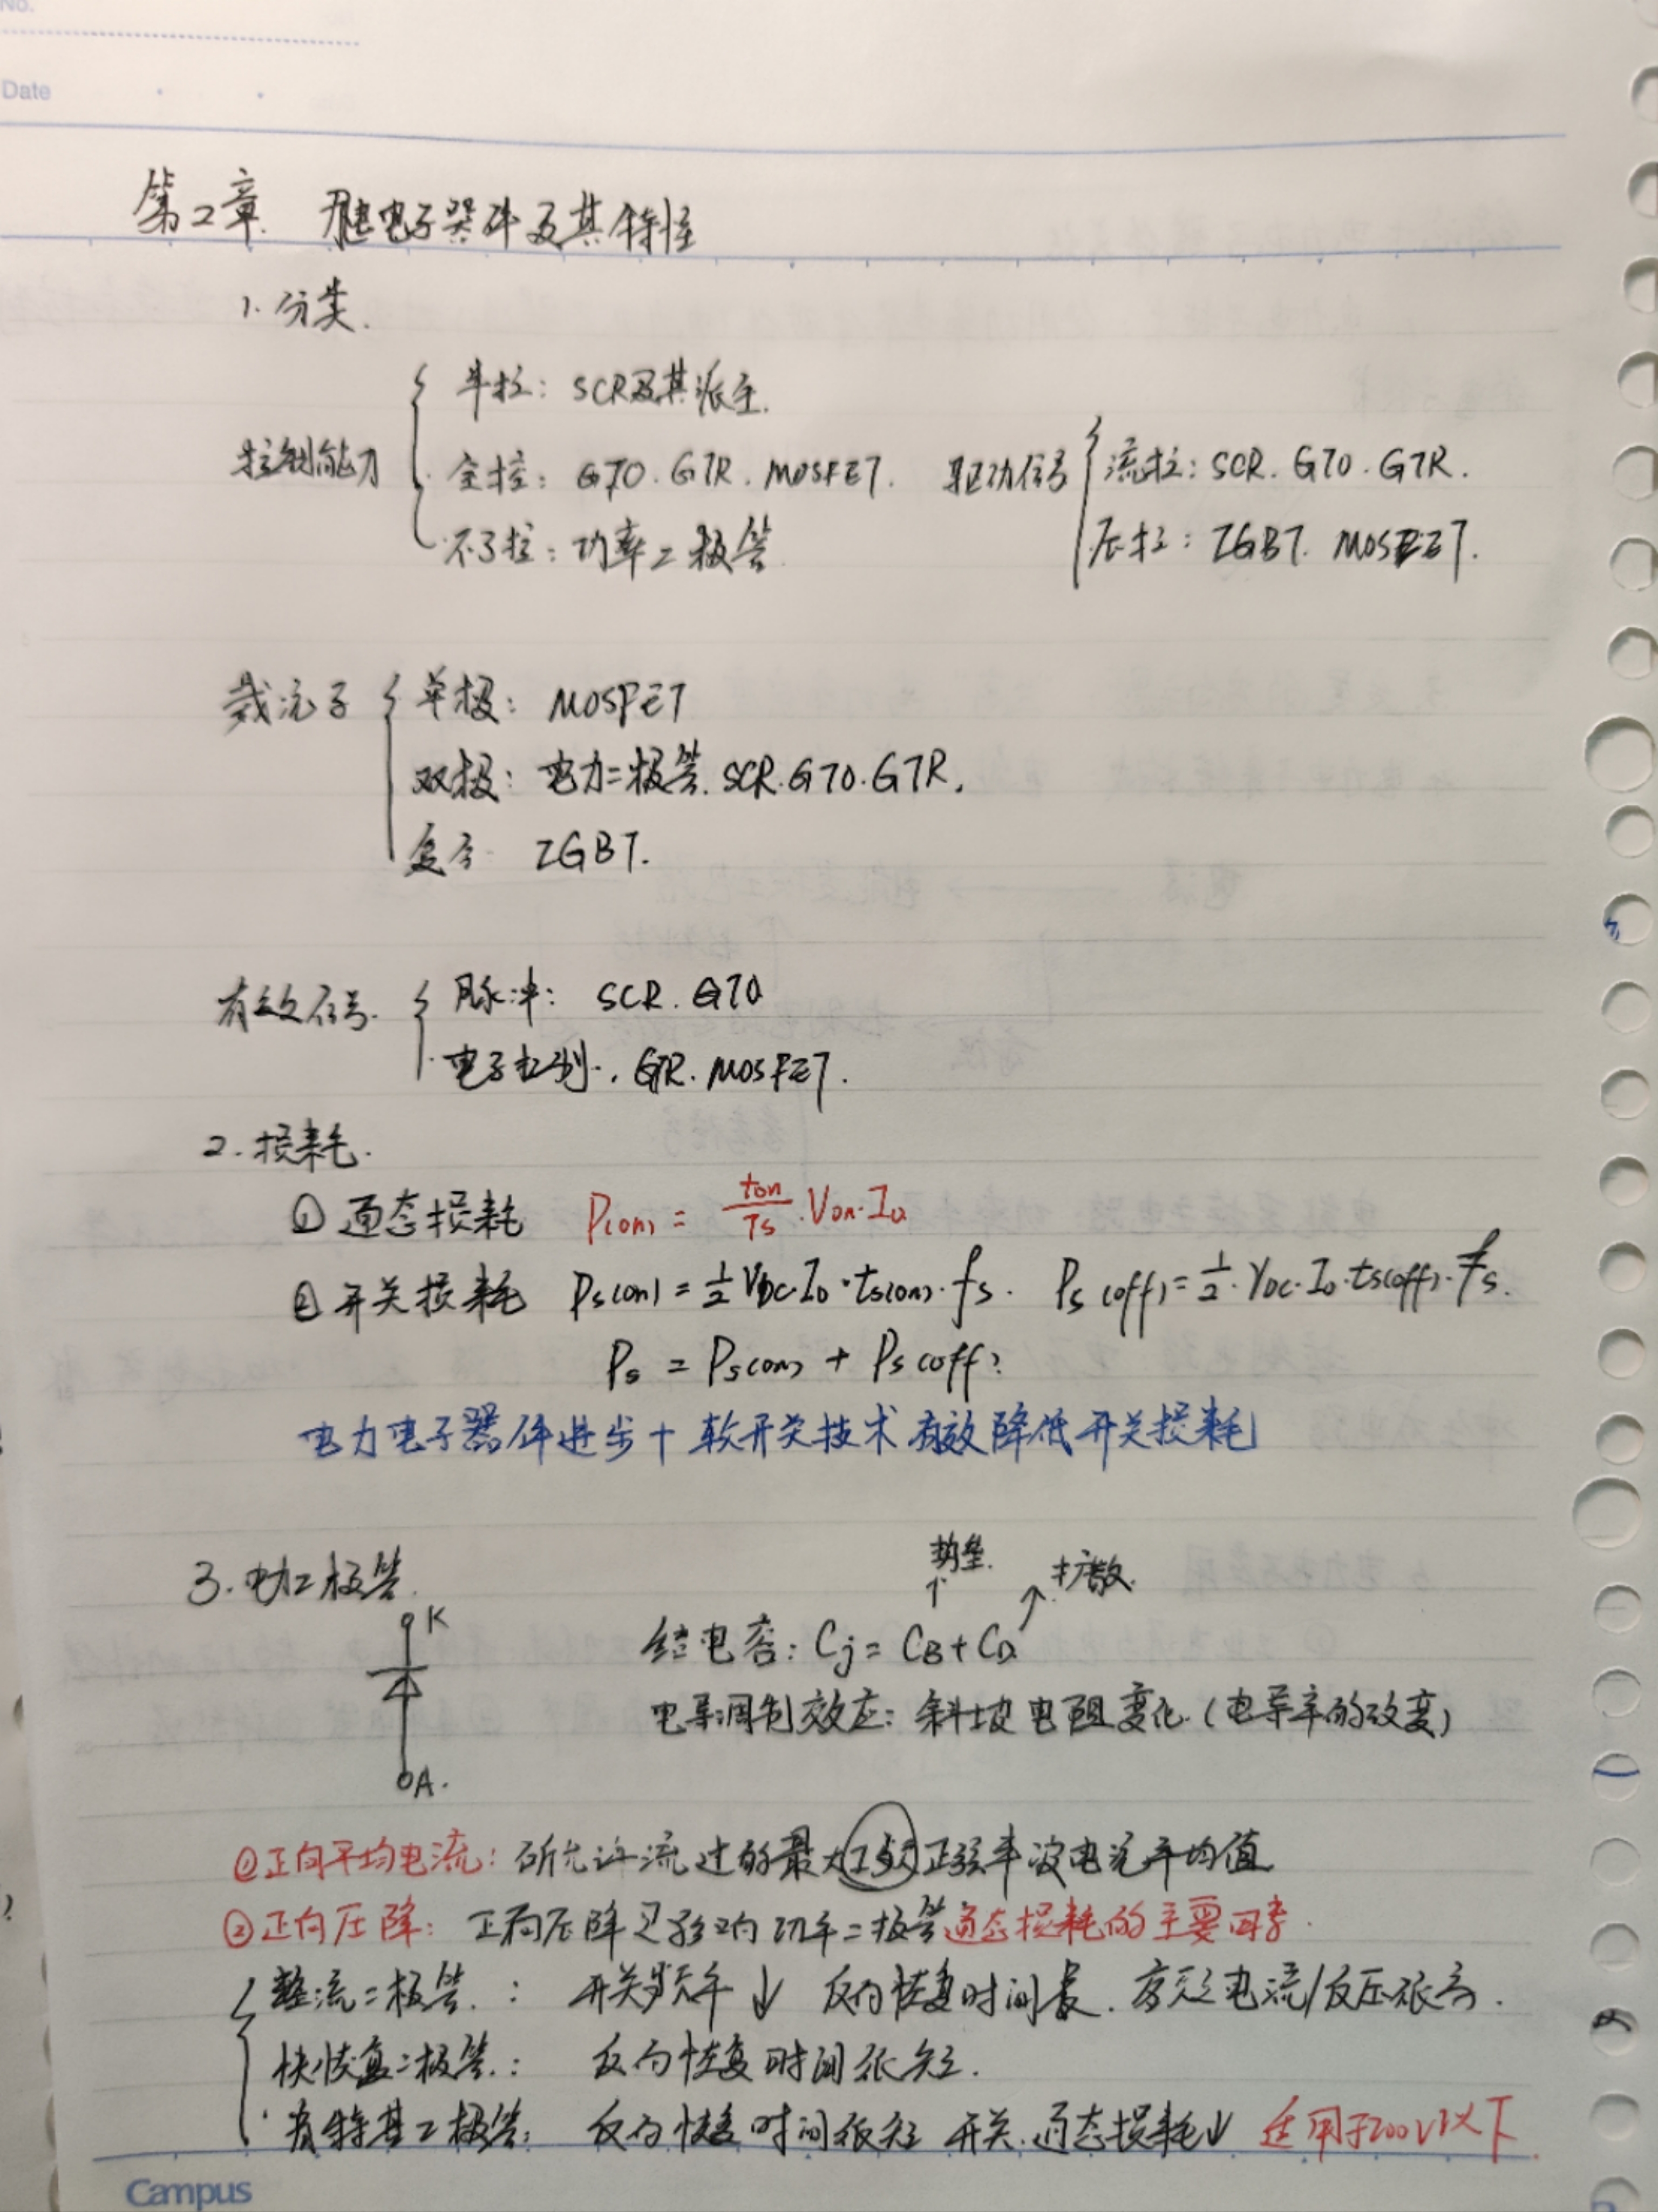 No.
Date
第2章 电力电子器件及其特性
1. 分类.
半控: SCR及其派生.
控制能力 全控: GTO. GTR. MOSFET. 驱动信号 流控: SCR. GTO. GTR.
不可控: 功率二极管 压控: IGBT. MOSFET.
载流子 单极: MOSFET
双极: 电力二极管. SCR. GTO. GTR.
复合 IGBT.
有效信号. 脉冲: SCR. GTO
电子控制. GTR. MOSFET.
2. 损耗.
① 通态损耗 P(on) = ton/Ts · Von · Io
② 开关损耗 Ps(on) = 1/2 VDC · Io · ts(on) · fs. Ps(off) = 1/2 · VDC · Io · ts(off) · fs.
Ps = Ps(on) + Ps(off)
电力电子器件进步 + 软开关技术 有效降低开关损耗
3. 电力二极管. 势垒. 扩散.
K
结电容: Cj = CB + CD
电导调制效应: 斜坡电阻变化. (电导率的改变)
A.
①正向平均电流: 所允许流过的最大工频正弦半波电流平均值
②正向压降: 正向压降是影响功率二极管通态损耗的主要因素.
整流二极管.: 开关频率↓ 反向恢复时间长. 额定电流/反压很高.
快恢复二极管.: 反向恢复时间很短.
肖特基二极管: 反向恢复时间很短 开关.通态损耗↓ 适用于200V以下
Campus